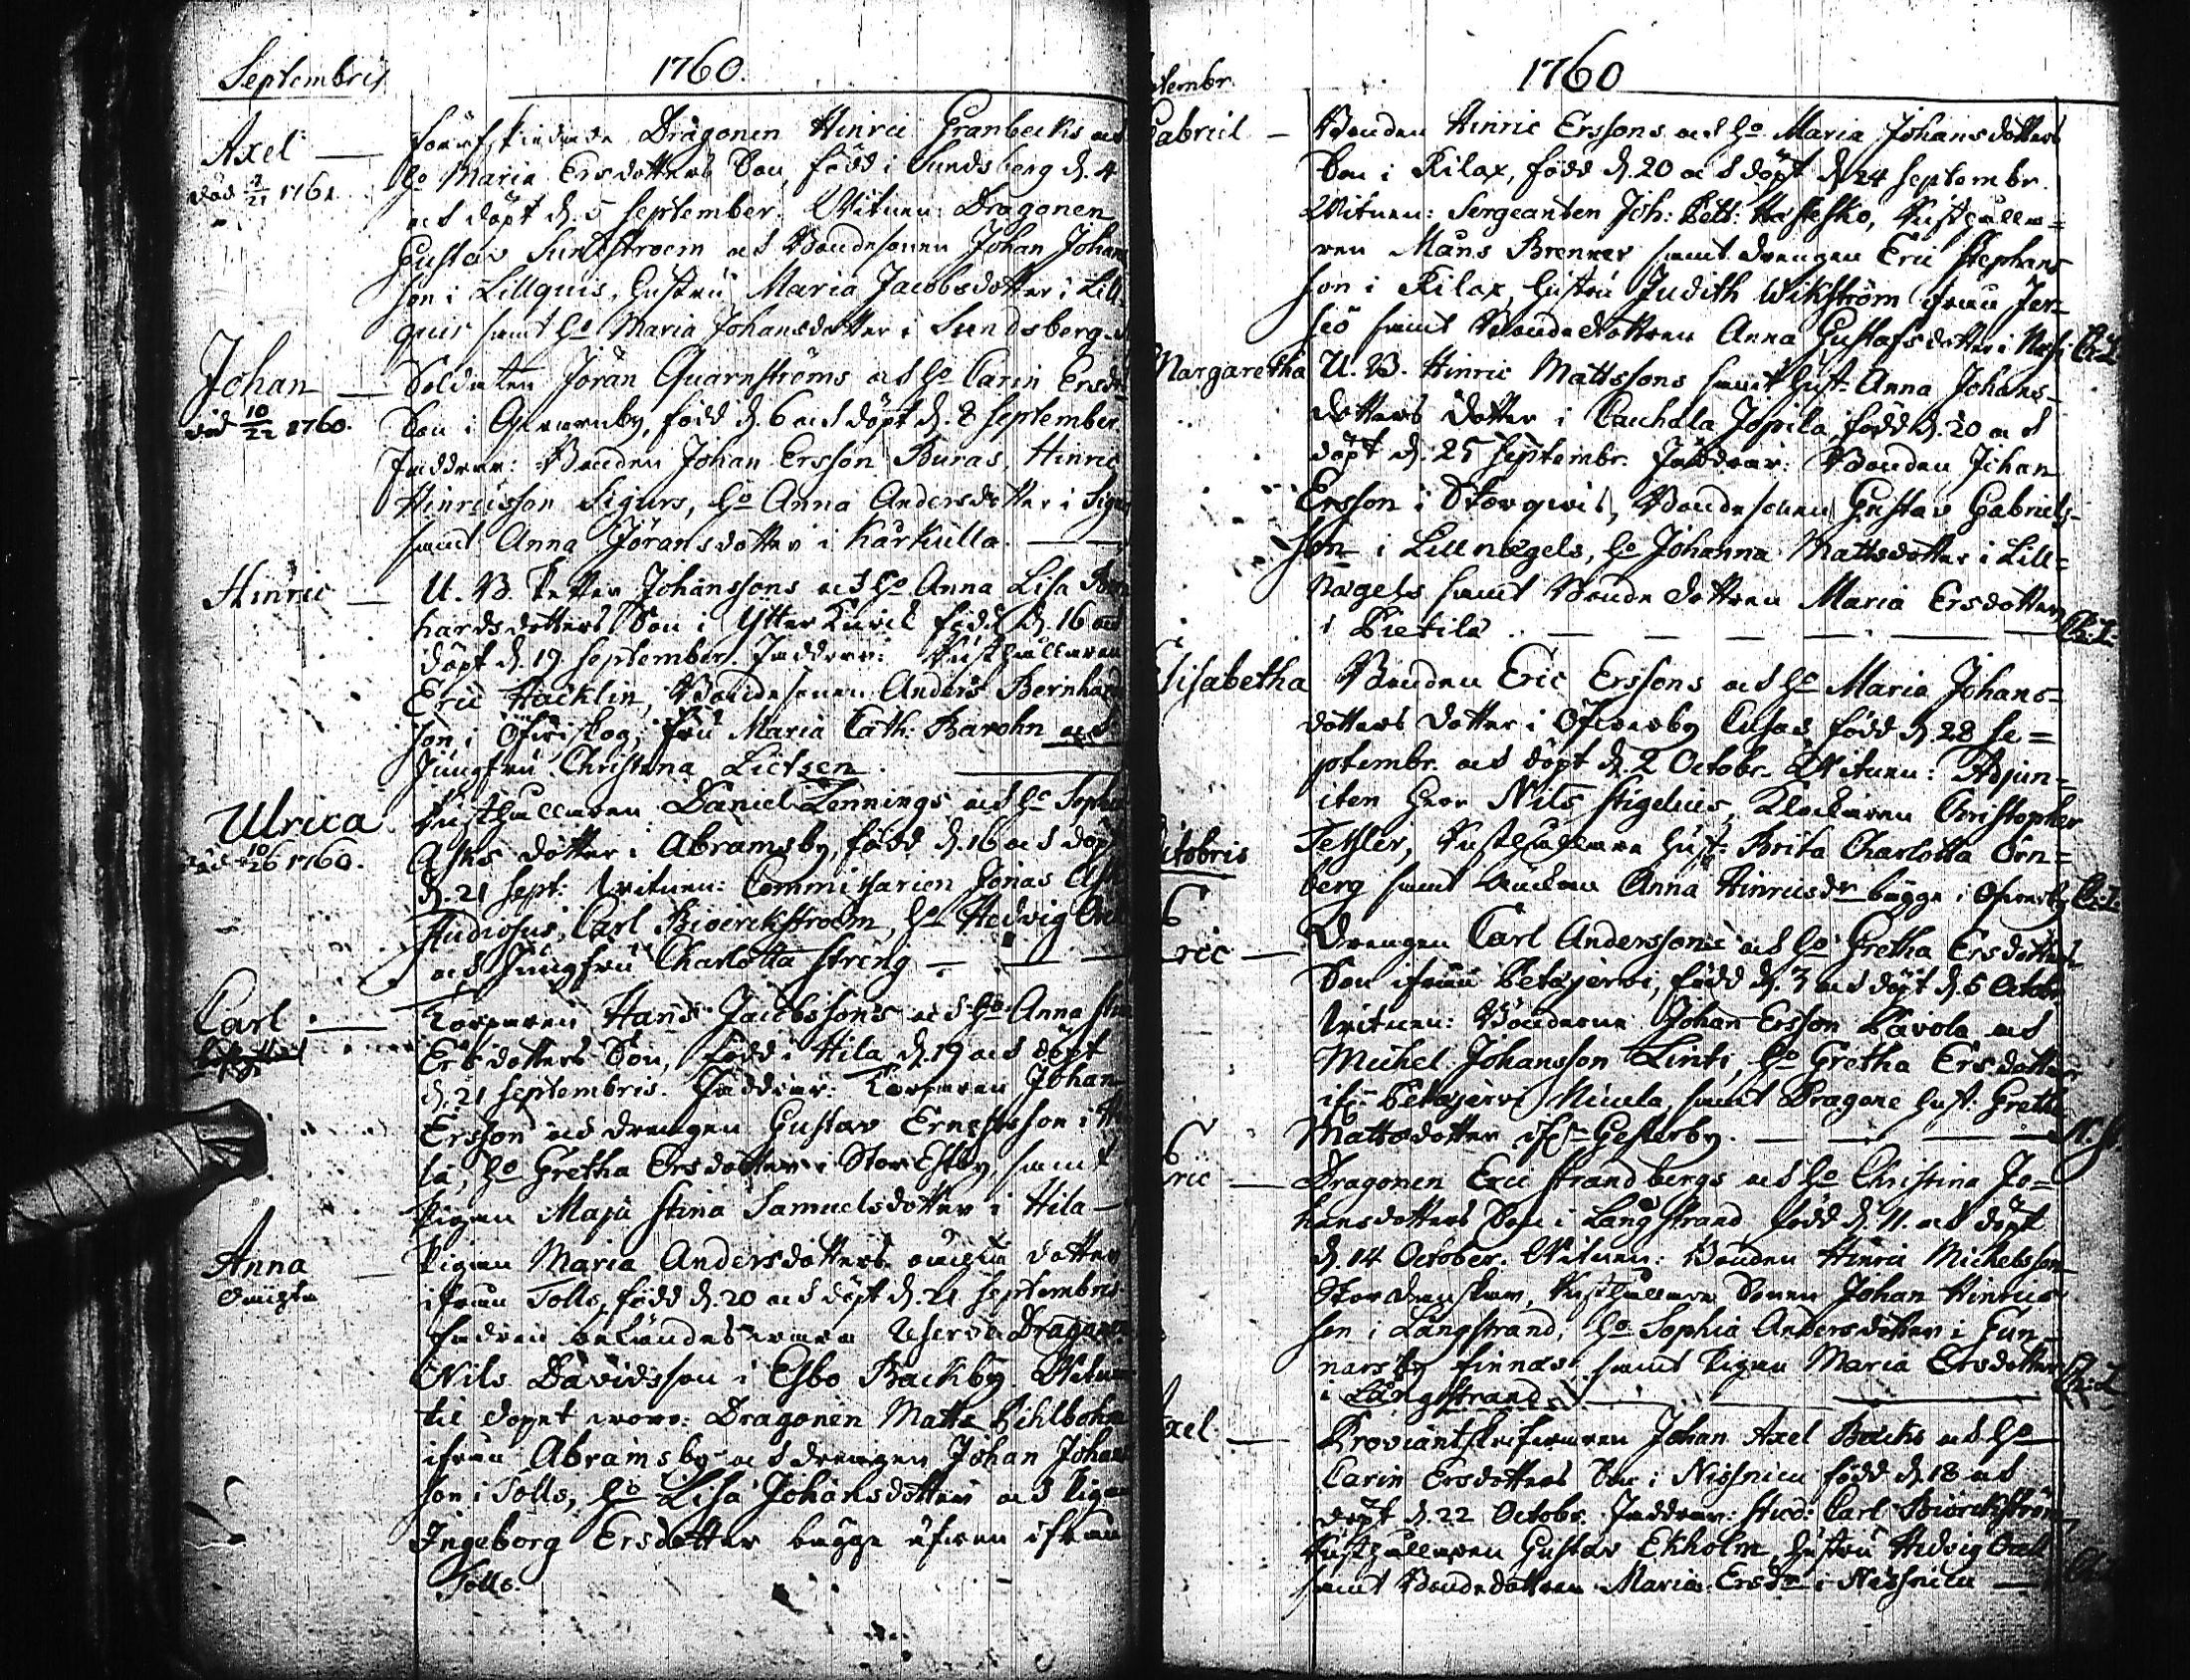 Septembris
1760.
Axel —
död 3/21 1761.
Dragonen Hinric Granbecks och
H:o Maria Ersdotters Son, född i Sundsberg d. 4
och döpt d. 5 September. Witnen: Dragonen
Gustav Sundstroem och Bondesonen Johan Johans
son i Lillquis, Hustru Maria Jacobsdotter i Lill-
quis samt H:o Maria Johansdotter i Sundsberg
Johan —
död 10/22 1760.
Soldaten Jöran Quarnströms och H:o Carin Ersd:rs
Son i, född d. 6 och döpt d. 8 September
Faddrar: Bonden Johan Ersson Buras, Hinric
Hinricsson Sigurs, H:o Anna Andersdotter i Sigurs
samt Anna Jöransdotter i Karkulla. —
Hinric —
U. B. Petter Johanssons och H:o Anna Lisa Bern
hardsdotters Son i Ytter Kurck född d. 16 och
döpt d. 19 September. Faddrar: Rusthållaren
Eric Hacklin, Bondesonen Anders Bernhards
son i Öfwerskog, Fru Maria Cath: Barohn och
Jungfru Christina Lietzen. —
Ulrica
död 10/26 1760.
Rusthållaren Daniel Lennings och H:o Sophia
Asks dotter i Abramsby, född d. 16 och döpt
d. 21 Sept: Witnen: Commissarien Jonas Ask
Studiosus Carl Bioerckstroem, H:o Hedvig
och Jungfru Charlotta Streng —
Carl —
Torparen Hans Jacobssons och H:o Anna Stina
Ersdotters Son, född i Hila d. 19 och döpt
d. 21 Septembris. Faddrar: Torparen Johan
Ersson och drengen Gustav Ernstsson i Hi
la, H:o Gretha Ersdotter i Stor Esby, samt
Pigan Maja Stina Samuelsdotter i Hila —
Anna —
oächta
Pigan Maria Andersdotters oächta dotter
ifrån Tolls, född d. 20 och döpt d. 21 Septembris
fadren wara Dragonen
Nils Davidsson i Esbo Backby. Witnen
til dopet woro: Dragonen Matts Pihlbohm
ifrån Abramsby och drengen Johan Johans
son i Tolls, H:o Lisa Johansdotter och Pigan
Ingeborg Ersdotter bägge äfwen ifrån
Tolls.
Septembr.
1760
Gabriel —
Bonden Hinric Erssons och H:o Maria Johansdotters
Son i Kilax, född d. 20 och döpt d 24 Septembr.
Witnen: Sergeanten Joh: Pett: Hastesko, Rusthålla-
ren Måns Brenner samt drengen Eric Stephans
son i Kilax, Hustru Judith Wikström ifrån Jer-
seö samt Bondedottren Anna Gustafsdotter i
Margaretha
U. B. Hinric Mattssons samt Hust: Anna Johans-
dotters dotter i Cauhala Jopila, född d. 20 och
döpt d. 25 Septembr. Faddrar: Bonden Johan
Ersson i Storqwis, Bondesonen Gustav Gabriels-
son i Lillnägels, H:o Johanna Mattsdotter i Lill-
nägels samt Bonde dottren Maria Ersdotter
i Pietilä. —
Elisabetha
Bonden Eric Erssons och H:o Maria Johans-
dotters dotter i Öfwerby Cusas, född d. 28 Se-
ptembr. och döpt d. 2 Octobr. Witnen: Adjun-
cten Herr Nils Stigelius, Klockaren Christopher
Tessler, Rusthållare Hust: Brita Charlotta Örn-
berg samt Änckan Anna Hinricsd:r bägge i Öfwerby
Octobris
Eric —
Drengen Carl Anderssons och H:o Gretha Ersdotters
Son ifrån Petäjerwi, född d. 3 och döpt d. 5 Octobr.
Witnen: Bönderne Johan Ersson Pavola och
Michel Johansson Linti, H:o Gretha Ersdotter
ifr: Petäjerwi Nicula, samt Dragone Hust: Gretha
Mattsdotter ifr: Gesterby. —
Eric —
Dragonen Eric Strandbergs och H:o Christina Jo-
hansdotters Son i Långstrand född d. 11. och döpt
d. 14 October. Witnen: Bonden Hinric Michelsson
, Rusthållare Sonen Johan Hinrics
son i Långstrand, H:o Sophia Andersdotter i Gun-
narsby Finnas samt Pigan Maria Ersdotter
i Långstrand. —
Axel —
Proviantskrifwaren Johan Axel Bäcks och H:o
Carin Ersdotters Son i Nissnicu född d. 18 och
döpt d. 22 Octobr. Faddrar: Stud: Carl Biörckström,
Rusthållaren Gustav Ekholm, Hustru Hedvig
samt Bondedottren Maria Ersd:r i Nissnicu —